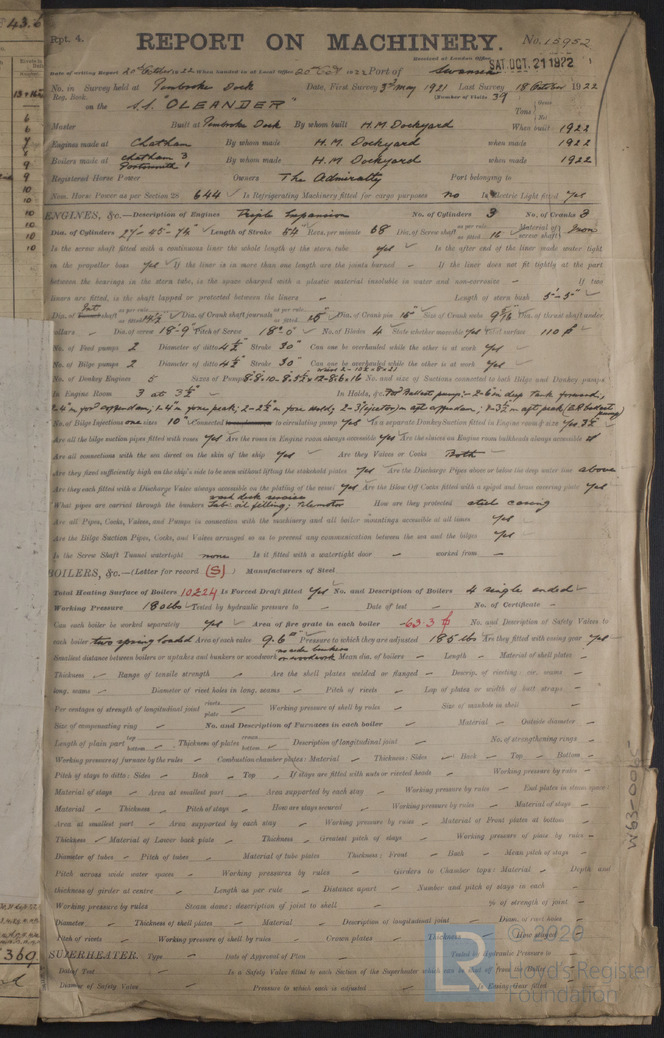 Rpt. 4.
REPORT ON MACHINERY.
No. 15952
Received at London Office SAT. OCT. 21 1922
Date of writing Report 20th October 1922 When handed in at Local Office 20th Oct 1922 Port of Swansea
No. in Survey held at Pembroke Dock Date, First Survey 3rd May 1921 Last Survey 18 October 1922
Reg. Book. (Number of Visits 39
on the S.S. "OLEANDER" Tons Gross Net
Master Built at Pembroke Dock By whom built H.M. Dockyard When built 1922
Engines made at Chatham By whom made H.M. Dockyard when made 1922
Boilers made at Chatham 3 Portsmouth 1 By whom made H.M. Dockyard when made 1922
Registered Horse Power Owners The Admiralty Port belonging to
Nom. Horse Power as per Section 28 644 Is Refrigerating Machinery fitted for cargo purposes no Is Electric Light fitted Yes
ENGINES, &c.—Description of Engines Triple Expansion No. of Cylinders 3 No. of Cranks 3
Dia. of Cylinders 27"-45"-74" Length of Stroke 54" Revs. per minute 68 Dia. of Screw shaft as per rule as fitted 16" Material of screw shaft Iron
Is the screw shaft fitted with a continuous liner the whole length of the stern tube yes Is the after end of the liner made water tight
in the propeller boss yes If the liner is in more than one length are the joints burned - If the liner does not fit tightly at the part
between the bearings in the stern tube, is the space charged with a plastic material insoluble in water and non-corrosive - If two
liners are fitted, is the shaft lapped or protected between the liners - Length of stern bush 5'-5"
collars Dia. of screw 18'-9" Pitch of Screw 18'-0" No. of Blades 4 State whether moveable yes Total surface 110
No. of Feed pumps 2 Diameter of ditto 4½ Stroke 30" Can one be overhauled while the other is at work Yes
No. of Bilge pumps 2 Diameter of ditto 4½ Stroke 30" Can one be overhauled while the other is at work Yes
No. of Donkey Engines 5 Sizes of Pumps No. and size of Suctions connected to both Bilge and Donkey pumps
In Engine Room 3 at 3½" In Holds, &c.
No. of Bilge Injections one sizes 10" Connected to circulating pump Yes Is a separate Donkey Suction fitted in Engine room & size Yes 3½
Are all the bilge suction pipes fitted with roses Yes Are the roses in Engine room always accessible Yes Are the sluices on Engine room bulkheads always accessible
Are all connections with the sea direct on the skin of the ship Yes Are they Valves or Cocks Both
Are they fixed sufficiently high on the ship's side to be seen without lifting the stokehold plates Yes Are the Discharge Pipes above or below the deep water line above
Are they each fitted with a Discharge Valve always accessible on the plating of the vessel Yes Are the Blow Off Cocks fitted with a spigot and brass covering plate Yes
What pipes are carried through the bunkers wash deck service tub: oil filling; telemotor How are they protected steel casing
Are all Pipes, Cocks, Valves, and Pumps in connection with the machinery and all boiler mountings accessible at all times Yes
Are the Bilge Suction Pipes, Cocks, and Valves arranged so as to prevent any communication between the sea and the bilges Yes
Is the Screw Shaft Tunnel watertight none Is it fitted with a watertight door - worked from -
BOILERS, &c.—(Letter for record (S) ) Manufacturers of Steel
Total Heating Surface of Boilers 10224 Is Forced Draft fitted Yes No. and Description of Boilers 4 single ended
Working Pressure 180 lbs Tested by hydraulic pressure to - Date of test - No. of Certificate -
Can each boiler be worked separately Yes Area of fire grate in each boiler 63.3 No. and Description of Safety Valves to
each boiler two spring loaded Area of each valve 9.6" Pressure to which they are adjusted 185 lbs Are they fitted with easing gear yes
Smallest distance between boilers or uptakes and bunkers or woodwork Mean dia. of boilers - Length - Material of shell plates -
Thickness - Range of tensile strength - Are the shell plates welded or flanged - Descrip. of riveting: cir. seams -
long. seams - Diameter of rivet holes in long. seams - Pitch of rivets - Lap of plates or width of butt straps -
Per centages of strength of longitudinal joint rivets plate Working pressure of shell by rules - Size of manhole in shell -
Size of compensating ring - No. and Description of Furnaces in each boiler - Material - Outside diameter -
Length of plain part top bottom Thickness of plates crown bottom Description of longitudinal joint - No. of strengthening rings -
Working pressure of furnace by the rules - Combustion chamber plates: Material - Thickness: Sides - Back - Top - Bottom -
Pitch of stays to ditto: Sides - Back - Top - If stays are fitted with nuts or riveted heads - Working pressure by rules -
Material of stays - Area at smallest part - Area supported by each stay - Working pressure by rules - End plates in steam space:
Material - Thickness - Pitch of stays - How are stays secured - Working pressure by rules - Material of stays -
Area at smallest part - Area supported by each stay - Working pressure by rules - Material of Front plates at bottom -
Thickness - Material of Lower back plate - Thickness - Greatest pitch of stays - Working pressure of plate by rules -
Diameter of tubes - Pitch of tubes - Material of tube plates - Thickness: Front - Back - Mean pitch of stays -
Pitch across wide water spaces - Working pressures by rules - Girders to Chamber tops: Material - Depth and
thickness of girder at centre - Length as per rule - Distance apart - Number and pitch of stays in each -
Working pressure by rules - Steam dome: description of joint to shell - % of strength of joint -
Diameter - Thickness of shell plates - Material - Description of longitudinal joint - Diam. of rivet holes -
Pitch of rivets - Working pressure of shell by rules - Crown plates - Thickness - How stayed -
SUPERHEATER. Type - Date of Approval of Plan - Tested by Hydraulic Pressure to -
Date of Test - Is a Safety Valve fitted to each Section of the Superheater which can be shut off from the Boiler -
Diameter of Safety Valve - Pressure to which each is adjusted - Is Easing Gear fitted -
© 2020
Lloyd's Register
Foundation